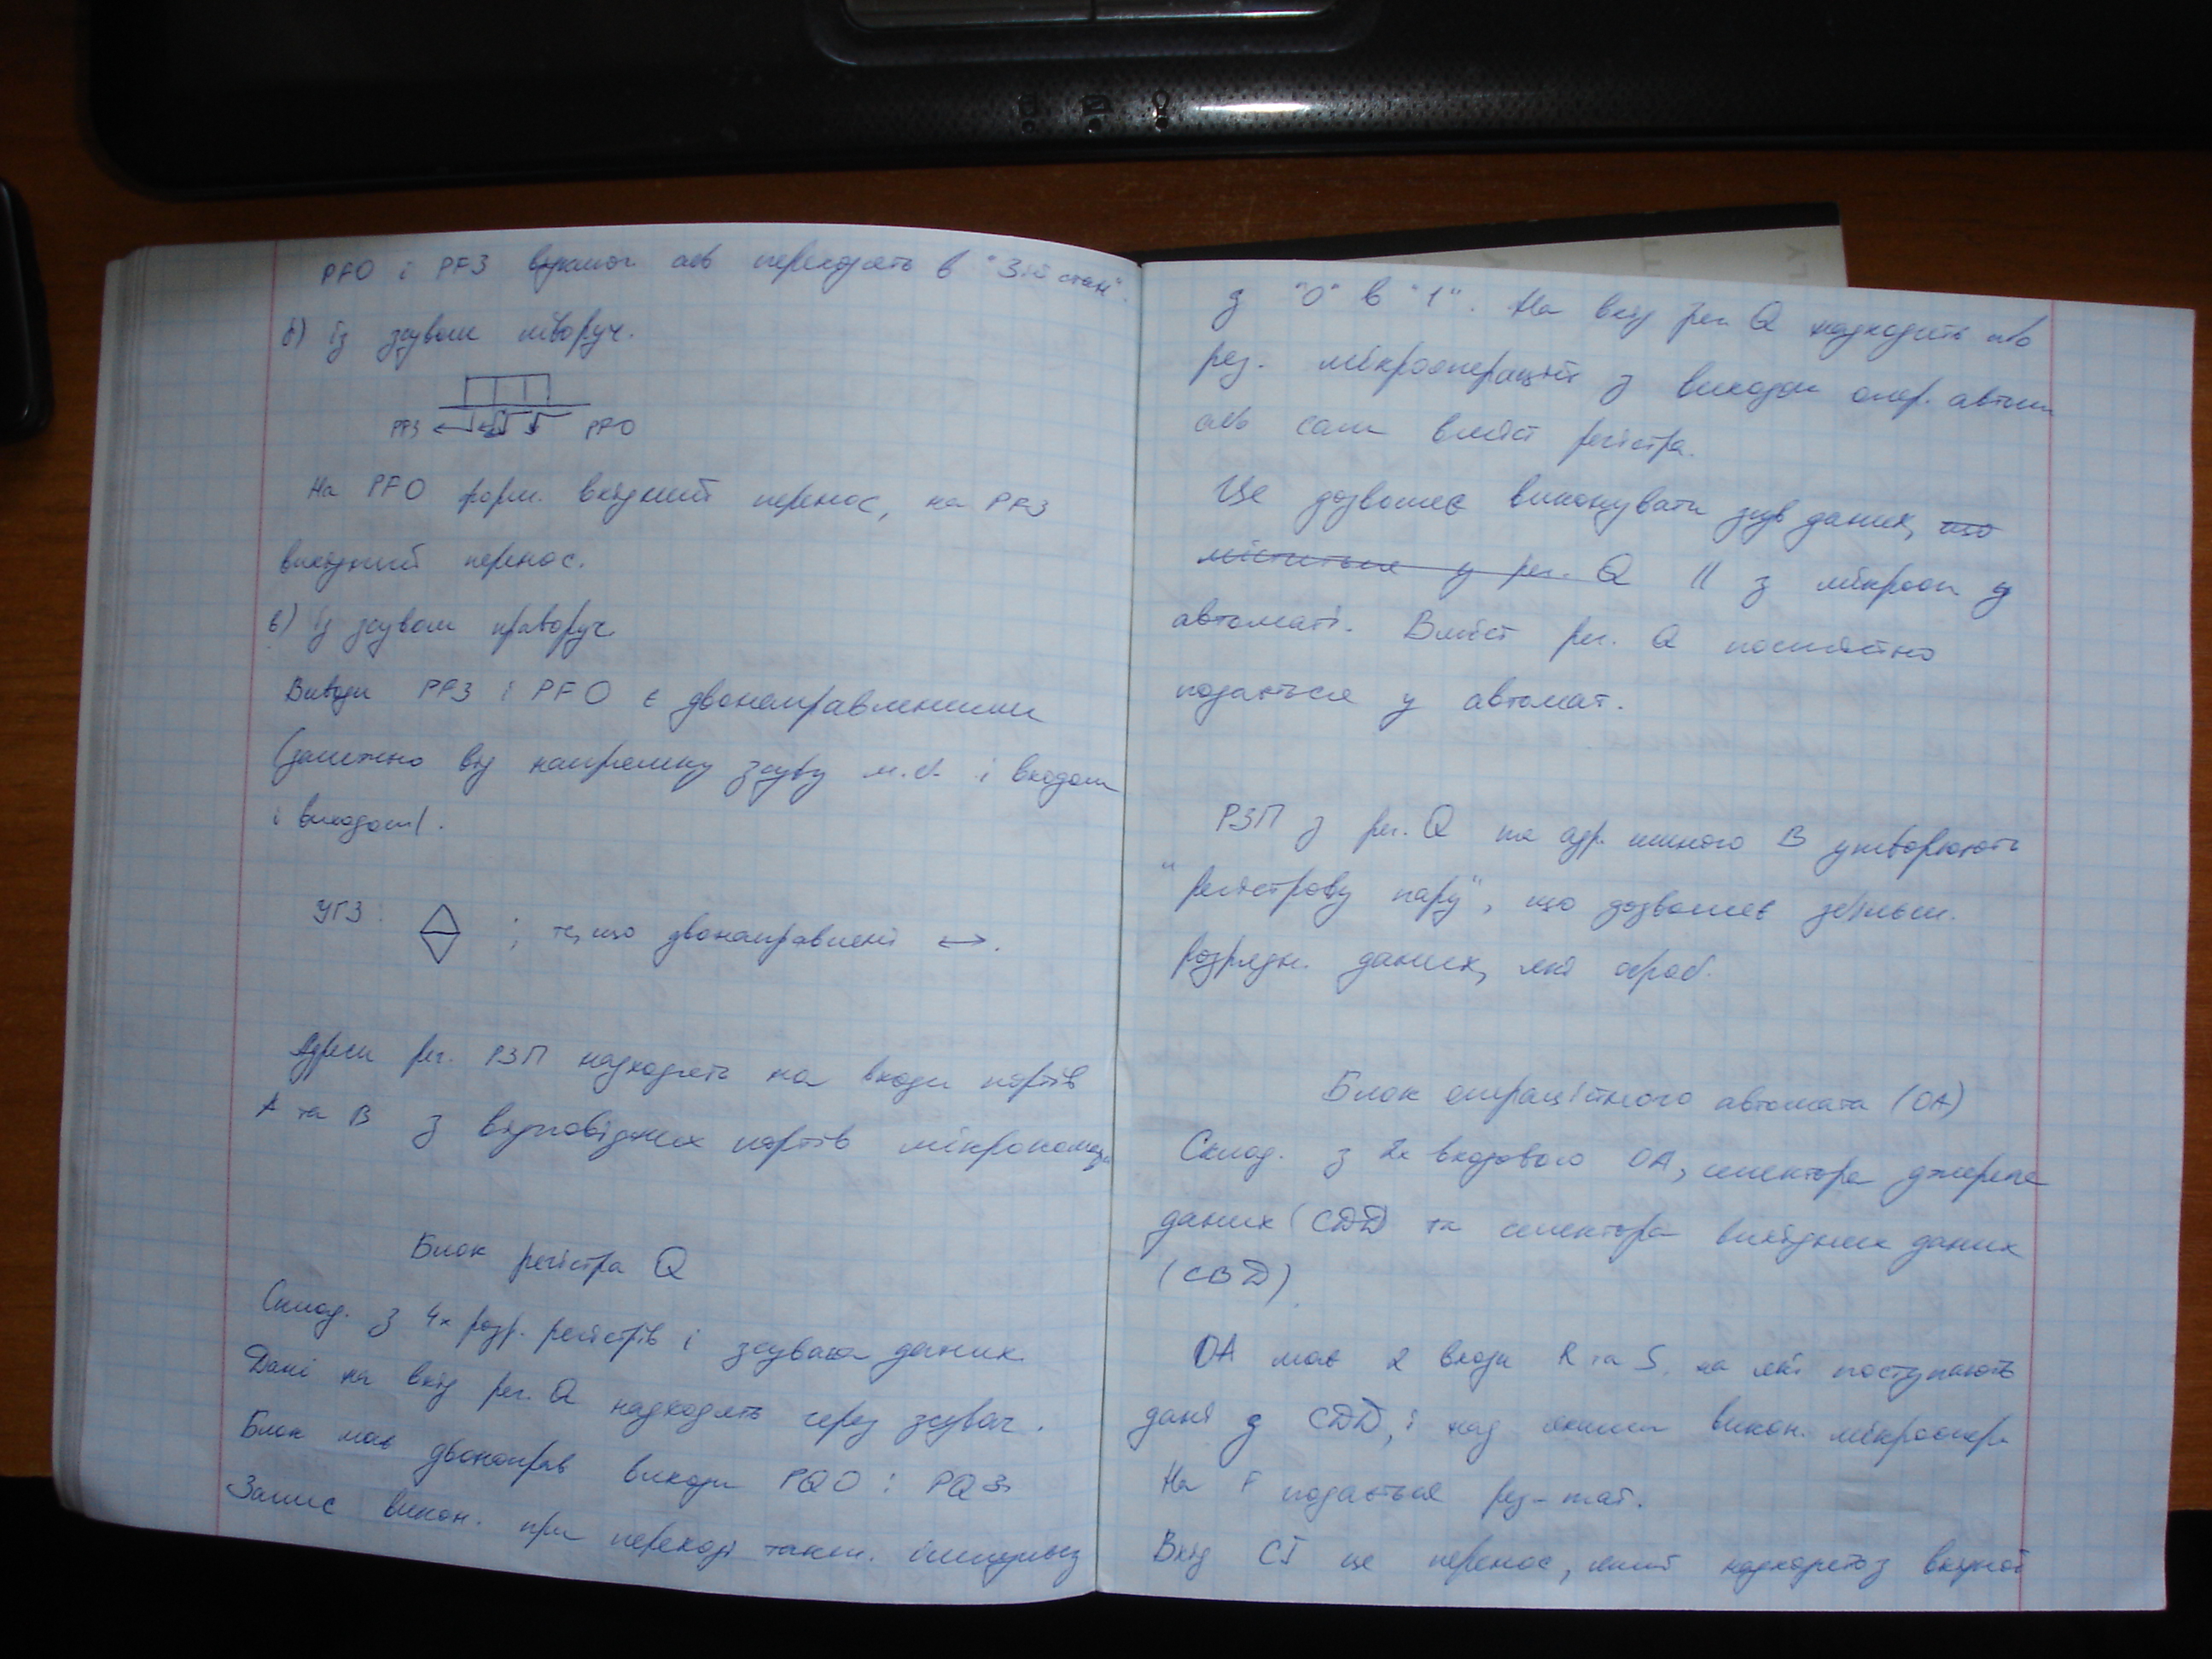 PF0 і PF3 переходять в "3-ій стан".
б) із зсувом ліворуч.
PF3 PF0
На PF0 форм. вхідний перенос, на PF3
вихідний перенос.
в) із зсувом праворуч.
Виводи PF3 і PF0 є двонаправленими
(залежно від напрямку зсуву м.б. і входом
і виходом).
УГЗ: ; те, що двонаправлені ↔.
Адреси рег. РЗП надходять на входи портів
А та В з відповідних портів мікрокоманди
Блок регістра Q
Склад. з 4х розр. регістрів і зсувача даних
Дані на вхід рег. Q надходять через зсувач.
Блок має двонаправ виходи PQ0 і PQ3
Запис викон. при переході такт. імпульсу
з "0" в "1". На вхід рег. Q надходить або
рез. мікрооперацій з виходу опер. автом
або сам вміст регістра.
Це дозволяє виконувати зсув даних, що
міститься у рег. Q || з мікрооп у
автоматі. Вміст рег. Q постійно
подається у автомат.
РЗП з рег. Q та адр. В утворюють
"регістрову пару", що дозволяє збільш.
розрядн. даних, які оброб.
Блок операційного автомата (ОА)
Склад. з 2х входового ОА, селектора джерела
даних (СДД) та селектора вихідних даних
(СВД)
ОА має 2 входи R та S, на які поступають
дані з СДД, і над якими викон. мікроопер.
На F подається рез-тат.
Вхід CI це перенос, який надходить з